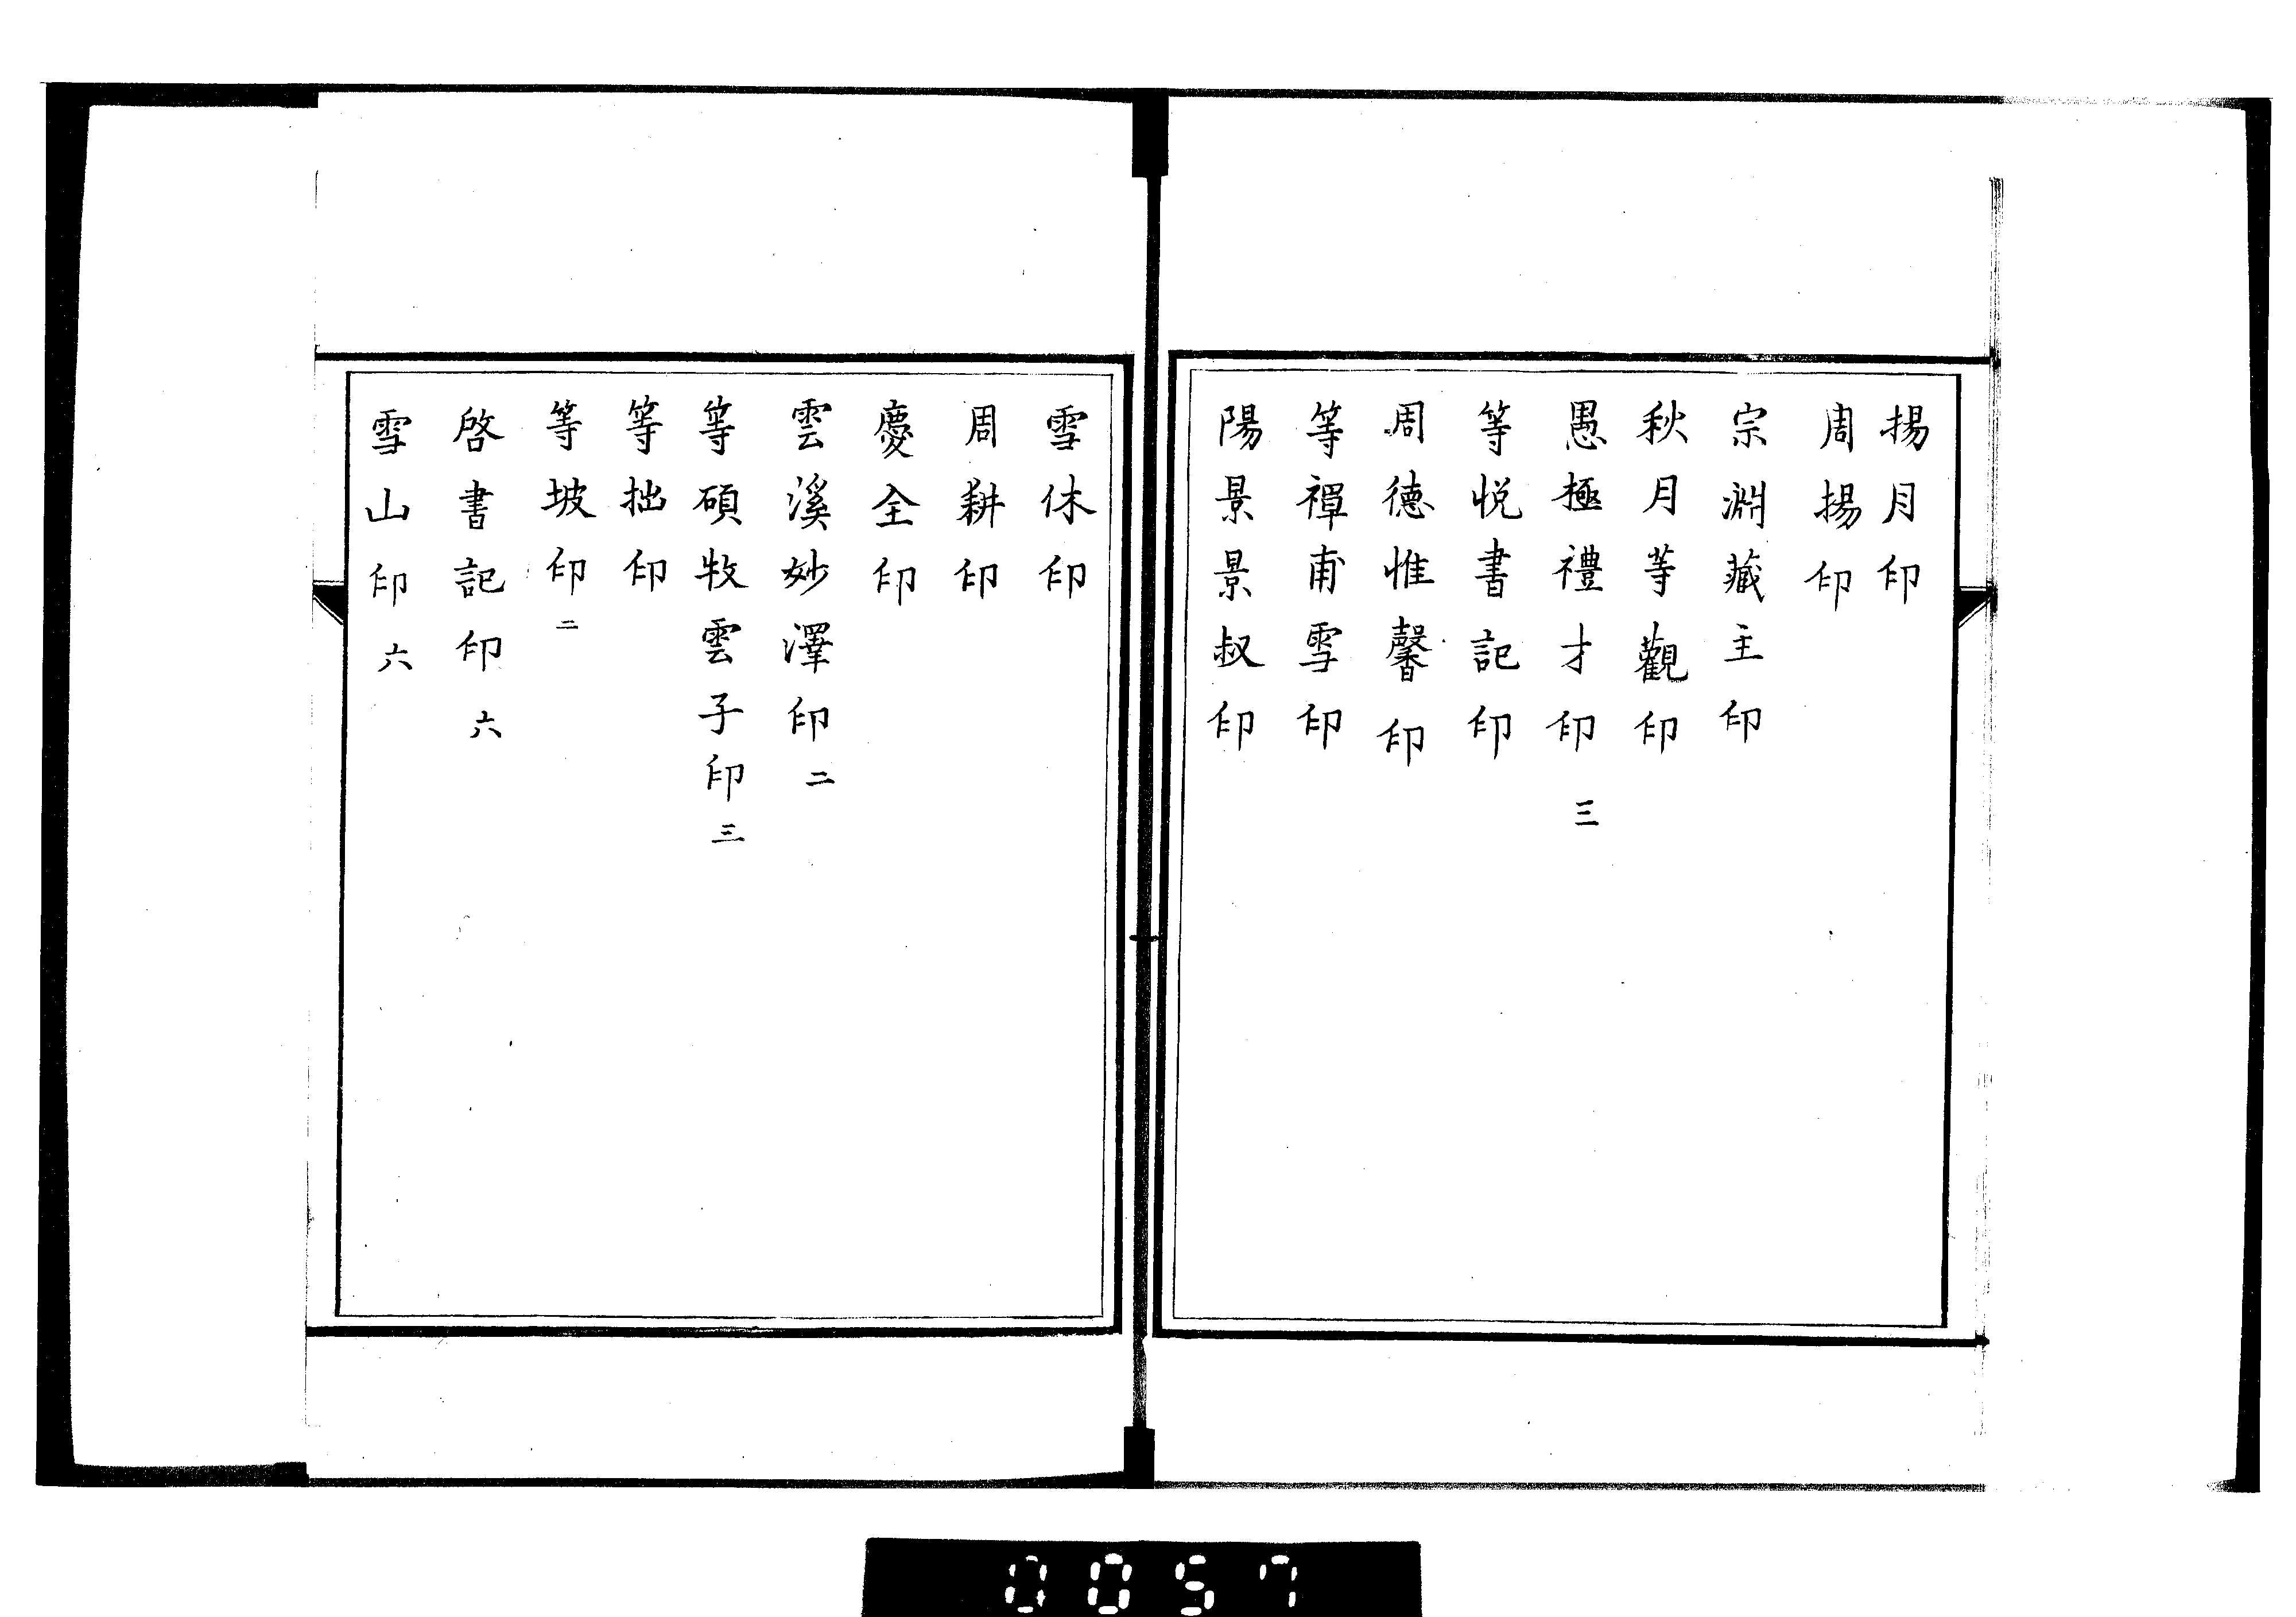 揚月印
周揚印
宗淵藏主印
秋月等觀印
愚極禮才印 三
等悦書記印
周德惟馨印
等禪甫雪印
陽景景叔印
雪休印
周耕印
慶全印
雲溪妙澤印 二
等碩牧雲子印 三
等拙印
等坡印 二
啓書記印 六
雪山印 六
0057